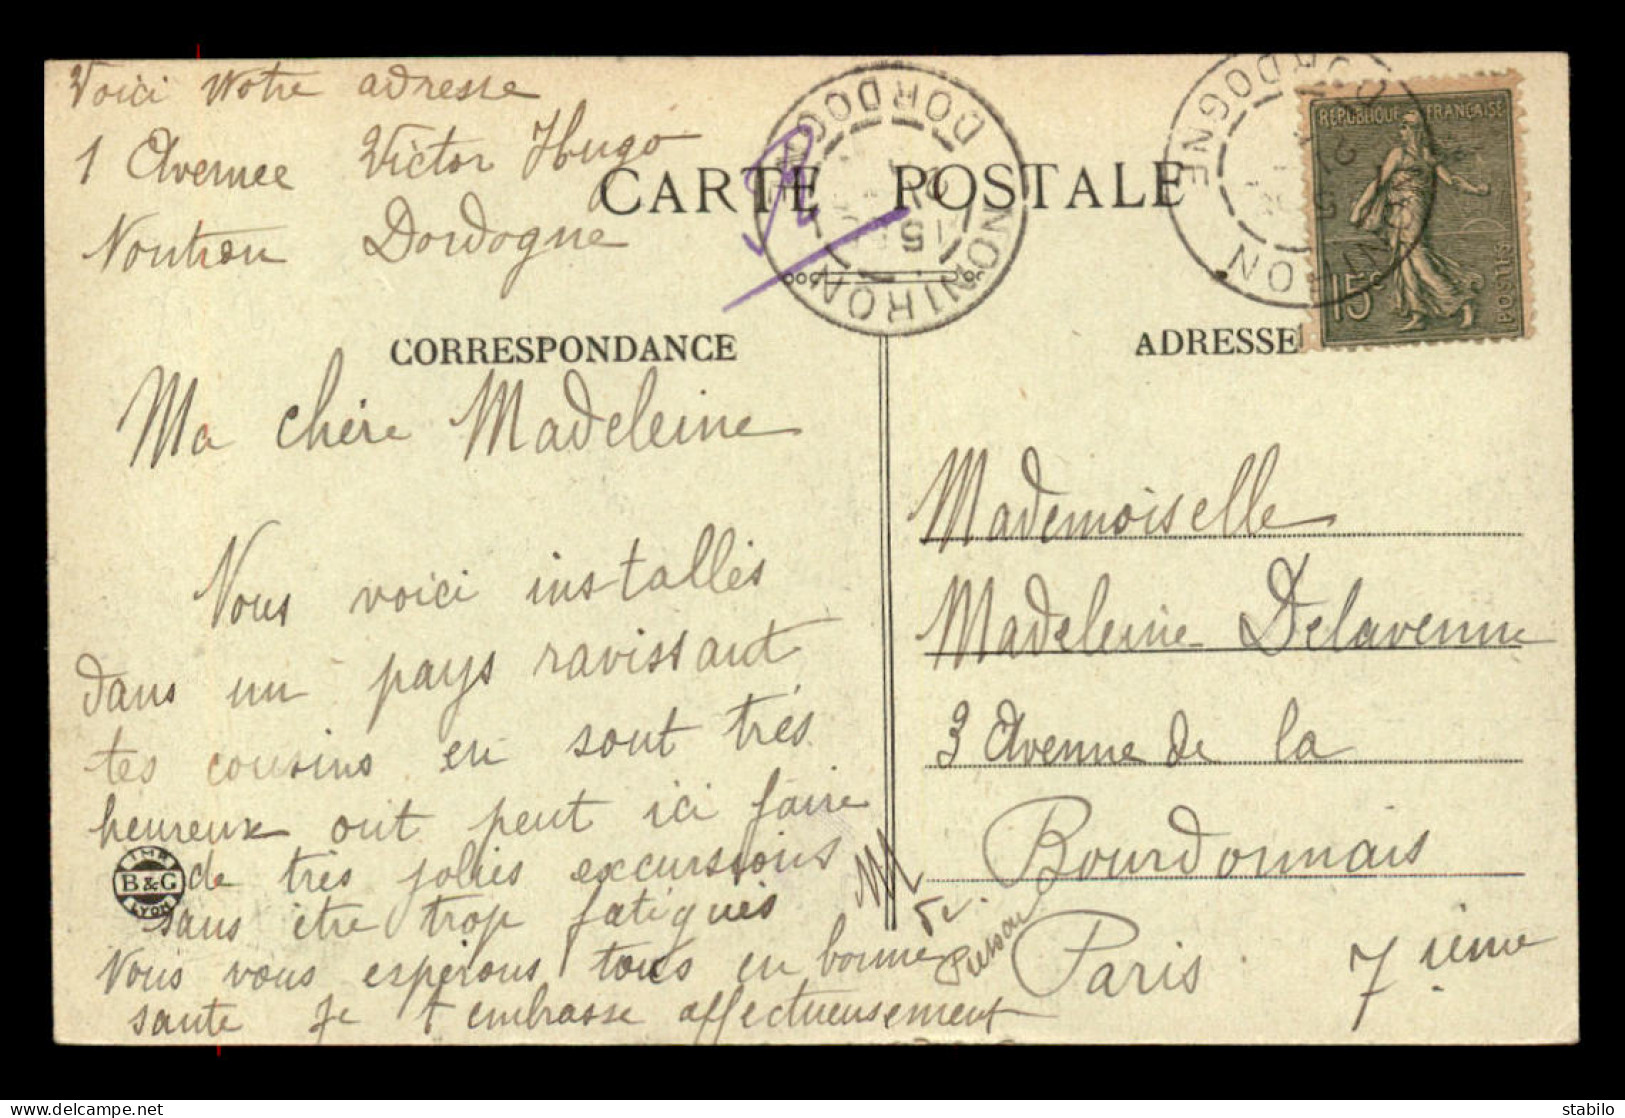 Voici Notre adresse
1 Avenue Victor Hugo
Nontron Dordogne
CARTE POSTALE
NONTRON DORDOGNE
15
NONTRON DORDOGNE
15
REPUBLIQUE FRANÇAISE
15c
POSTES
CORRESPONDANCE
ADRESSE
Ma chère Madeleine
Nous voici installés
dans un pays ravissant
tes cousins en sont très
heureux ont peut ici faire
de très jolies excurssions
sans être trop fatigués
Nous vous esperons tous en bonne
sante Je t embrasse affectueusement
IMP B&G LYON
Mademoiselle
Madeleine Delavenne
3 Avenue de la
Bourdonnais
Paris 7 ième
stabilo sur www.delcampe.net